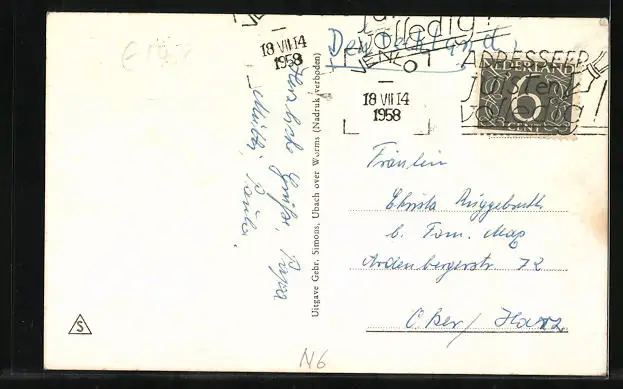 18 VII 14
1958
VENLO
juist en
volledig!
Deutschland
18 VII 14
1958
ADRESSEER
juist en
volledig!
NEDERLAND
6
CENT
Herzliche Grüße, Papa
Mutti,
Uitgave Gebr. Simons, Ubach over Worms (Nadruk verboden)
Fräulein
Christa Rüggebrecht
b. Fam. May
Ardenbergerstr 72
Oker/Harz
S
N6